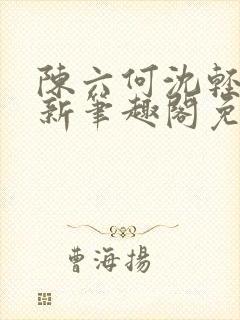 陳六何沈輕
新筆趣閣免
曹海揚